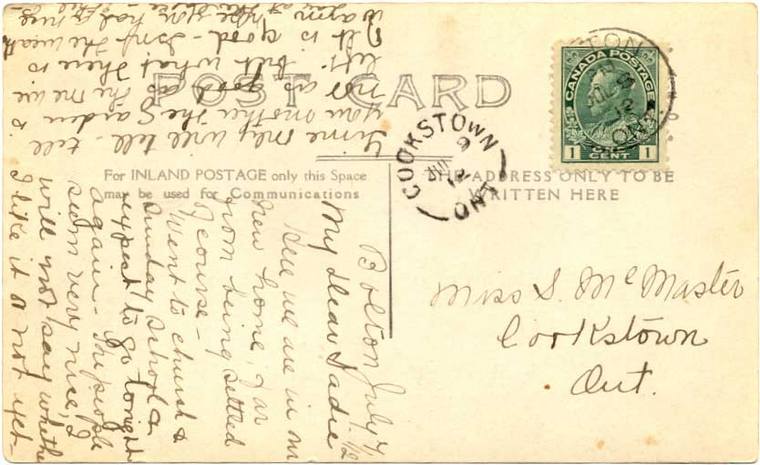 POST CARD
For INLAND POSTAGE only this Space
may be used for Communications
THE ADDRESS ONLY TO BE
WRITTEN HERE
CANADA POSTAGE
1 ONE CENT 1
TON
JUL 8
12
ONT
COOKSTOWN
JUL 9
12
ONT
Miss S. McMaster
Cookstown
Ont.
Bolton July 7/12
My dear Sadie
Here we are in our
new home, far
from being settled
of course -
I went to church &
Sunday School &
expect to go tonight
again - The people
seem very nice, I
will not say whether
I like it or not yet -
Time only will tell - tell
you mother the garden is
not as good as the one we
left - but what there is
of it is good - Isn't the weath
warm